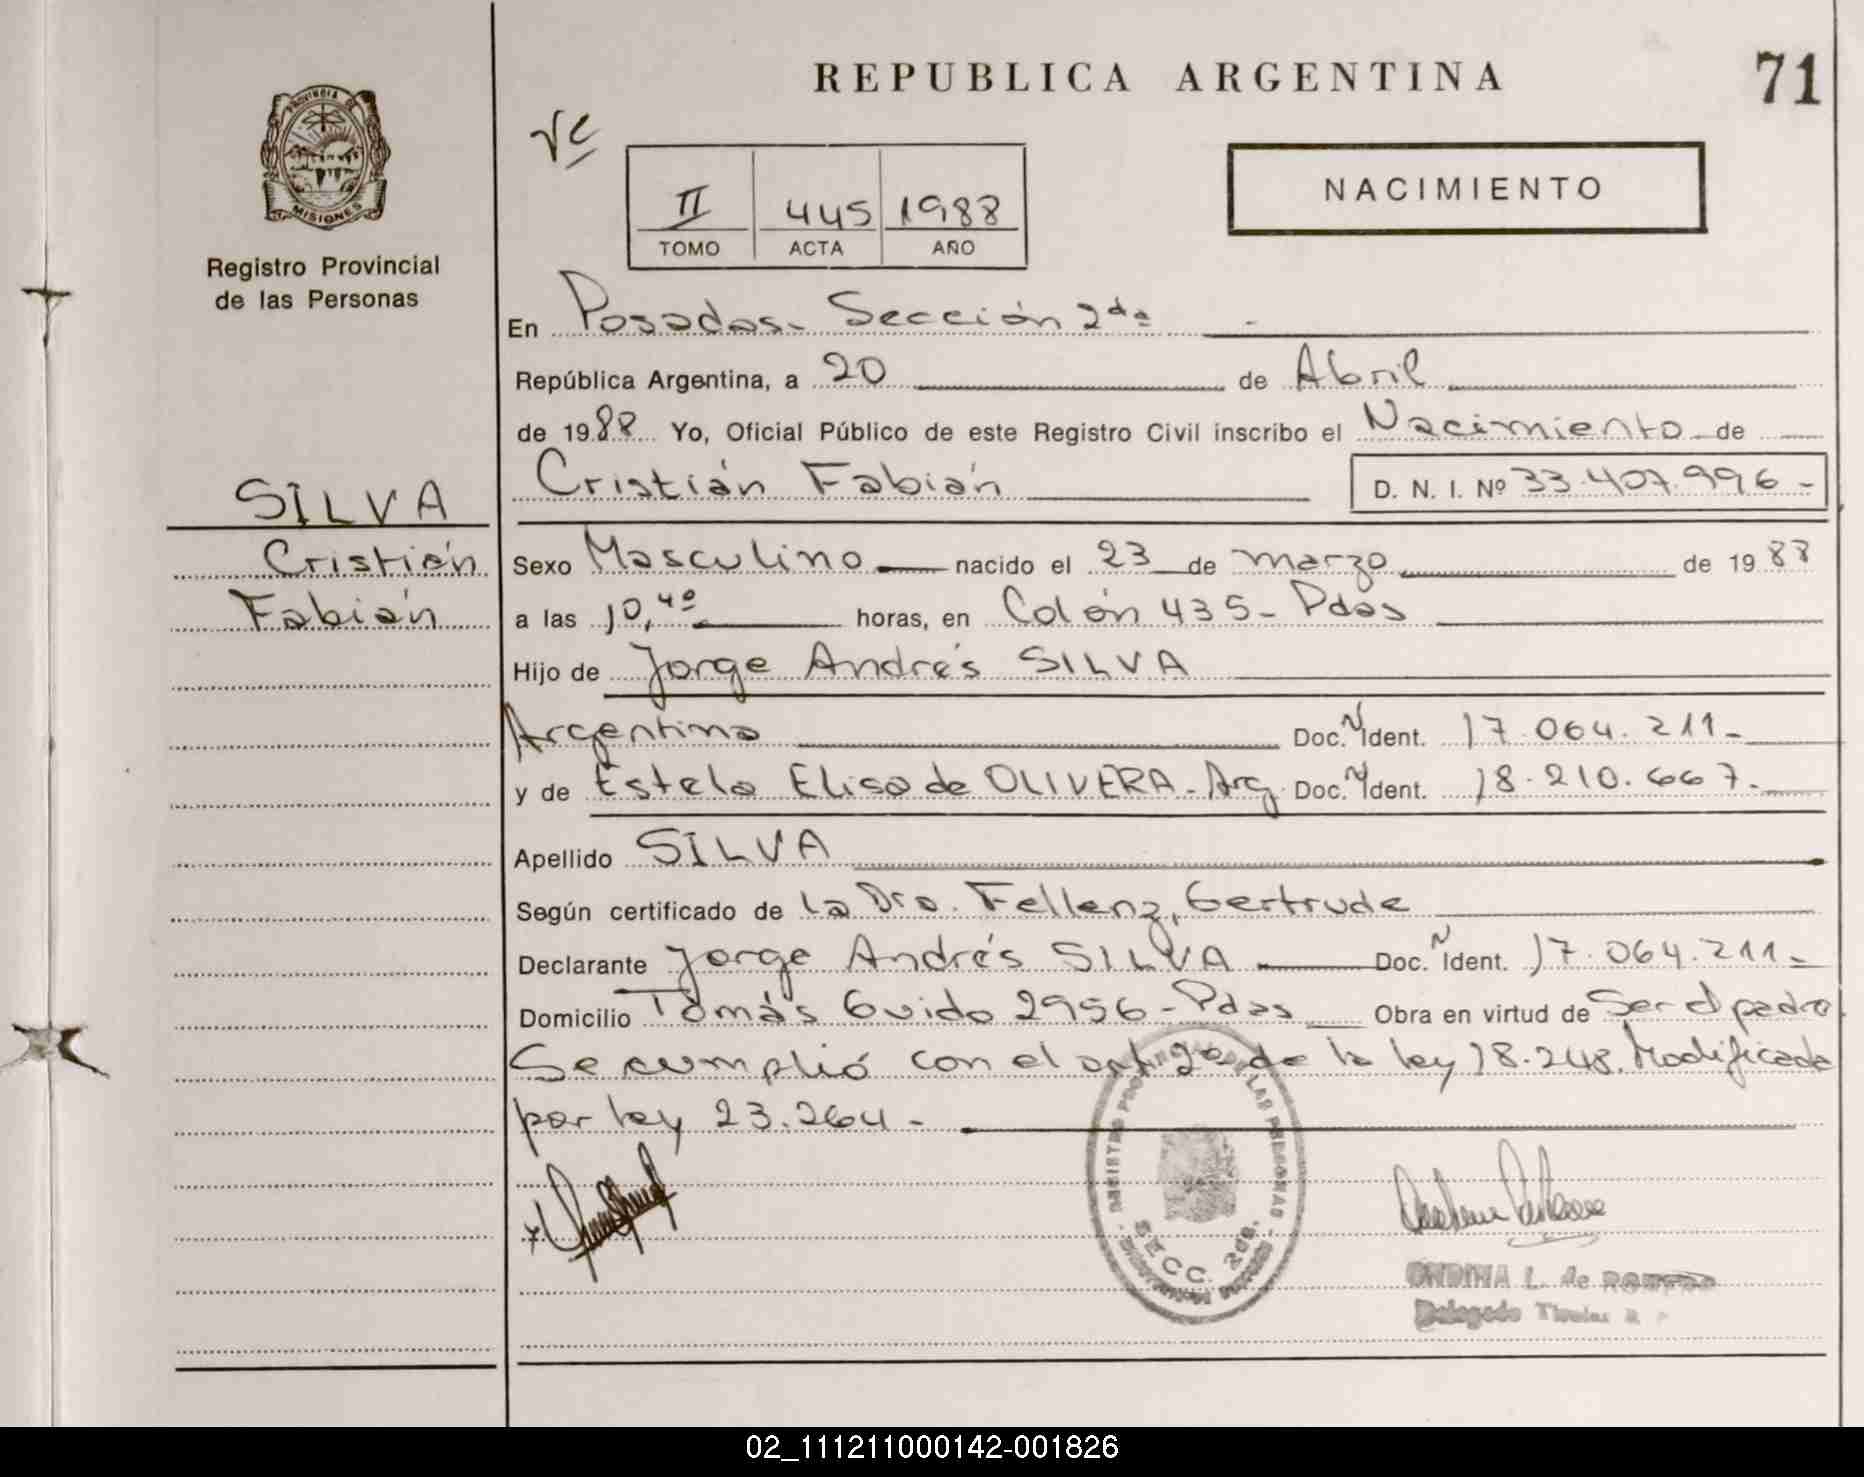 REPUBLICA ARGENTINA
71
PROVINCIA DE
MISIONES
Registro Provincial
de las Personas
II 445 1988
TOMO ACTA AÑO
NACIMIENTO
En Posadas - Sección 2da
República Argentina, a 20 de Abril
de 1988 Yo, Oficial Público de este Registro Civil inscribo el Nacimiento de
Cristián Fabián D. N. I. Nº 33.407.996 -
SILVA
Cristián
Fabián
Sexo Masculino nacido el 23 de marzo de 1988
a las 10,40 horas, en Colón 435 - Pdas
Hijo de Jorge Andrés SILVA
Argentino Doc. N Ident. 17.064.211 -
y de Estela Elisa de OLIVERA - Arg. Doc. N Ident. 18.210.667 -
Apellido SILVA
Según certificado de la Dra. Fellenz, Gertrude
Declarante Jorge Andrés SILVA Doc. N Ident. 17.064.211 -
Domicilio Tomás Guido 2956 - Pdas Obra en virtud de Ser el padre
Se cumplió con el art. 2º de la ley 18.248. Modificada
por ley 23.264 -
REGISTRO PROVINCIAL DE LAS PERSONAS
SECC. 2da.
ONDINA L. de ROMERO
Delegado Titular
02_111211000142-001826